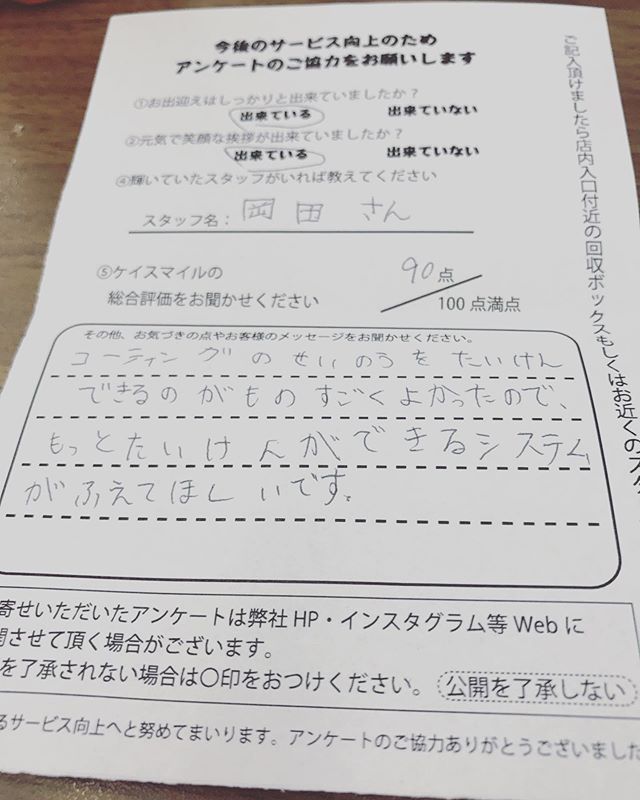 今後のサービス向上のため
アンケートのご協力をお願いします
①お出迎えはしっかりと出来ていましたか？
出来ている 出来ていない
②元気で笑顔な挨拶が出来ていましたか？
出来ている 出来ていない
④輝いていたスタッフがいれば教えてください
スタッフ名： 岡田 さん
⑤ケイスマイルの 90点
総合評価をお聞かせください 100点満点
その他、お気づきの点やお客様のメッセージをお聞かせください。
コーティングのせいのうをたいけん
できるのがものすごくよかったので、
もっとたいけんができるシステム
がふえてほしいです。
寄せいただいたアンケートは弊社HP・インスタグラム等Webに
開させて頂く場合がございます。
を了承されない場合は〇印をおつけください。 公開を了承しない
るサービス向上へと努めてまいります。アンケートのご協力ありがとうございました
ご記入頂けましたら店内入口付近の回収ボックスもしくはお近くのス